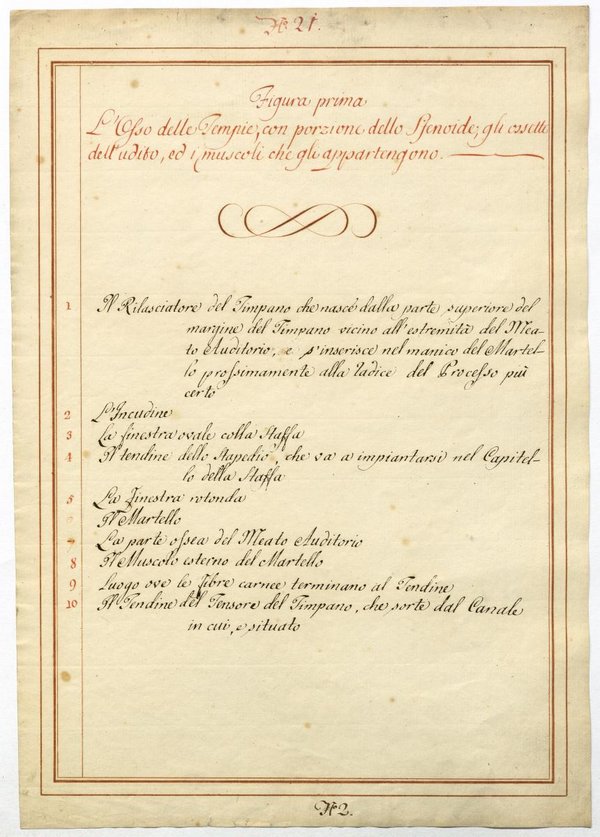 No. 21.
Figura prima
L'Osso delle Tempie, con porzione dello Sfenoide, gli ossetti
dell'udito, ed i muscoli che gli appartengono.
1 Il Rilasciatore del Timpano che nasce dalla parte superiore del
marjine del Timpano vicino all'estremità del Mea-
to Auditorio, e s'inserisce nel manico del Martel-
lo prossimamente alla radice del Processo più
certo
2 L'Incudine
3 La finestra ovale colla Staffa
4 Il tendine dello Stapedio, che va a impiantarsi nel Capitel-
lo della Staffa
5 La Finestra rotonda
Il Martello
7 La parte ossea del Meato Auditorio
8 Il Muscolo esterno del Martello
9 Luogo ove le Fibre carnee terminano al Tendine
10 Il Tendine del Tensore del Timpano, che sorte dal Canale
in cui, e situato
No. 2.